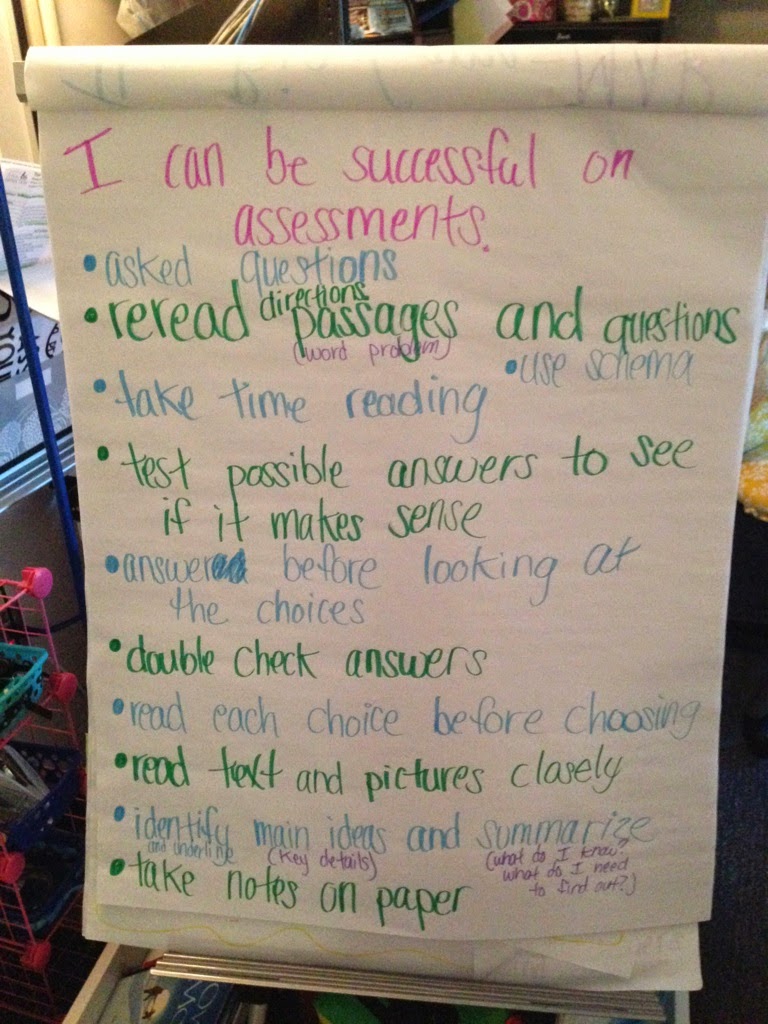 I can be successful on
assessments.
• asked questions
directions
• reread passages and questions
(word problem)
• use schema
• take time reading
• test possible answers to see
if it makes sense
• answer before looking at
the choices
• double check answers
• read each choice before choosing
• read text and pictures closely
• identify main ideas and summarize
and underline (key details) (what do I know?
what do I need
to find out?)
• take notes on paper